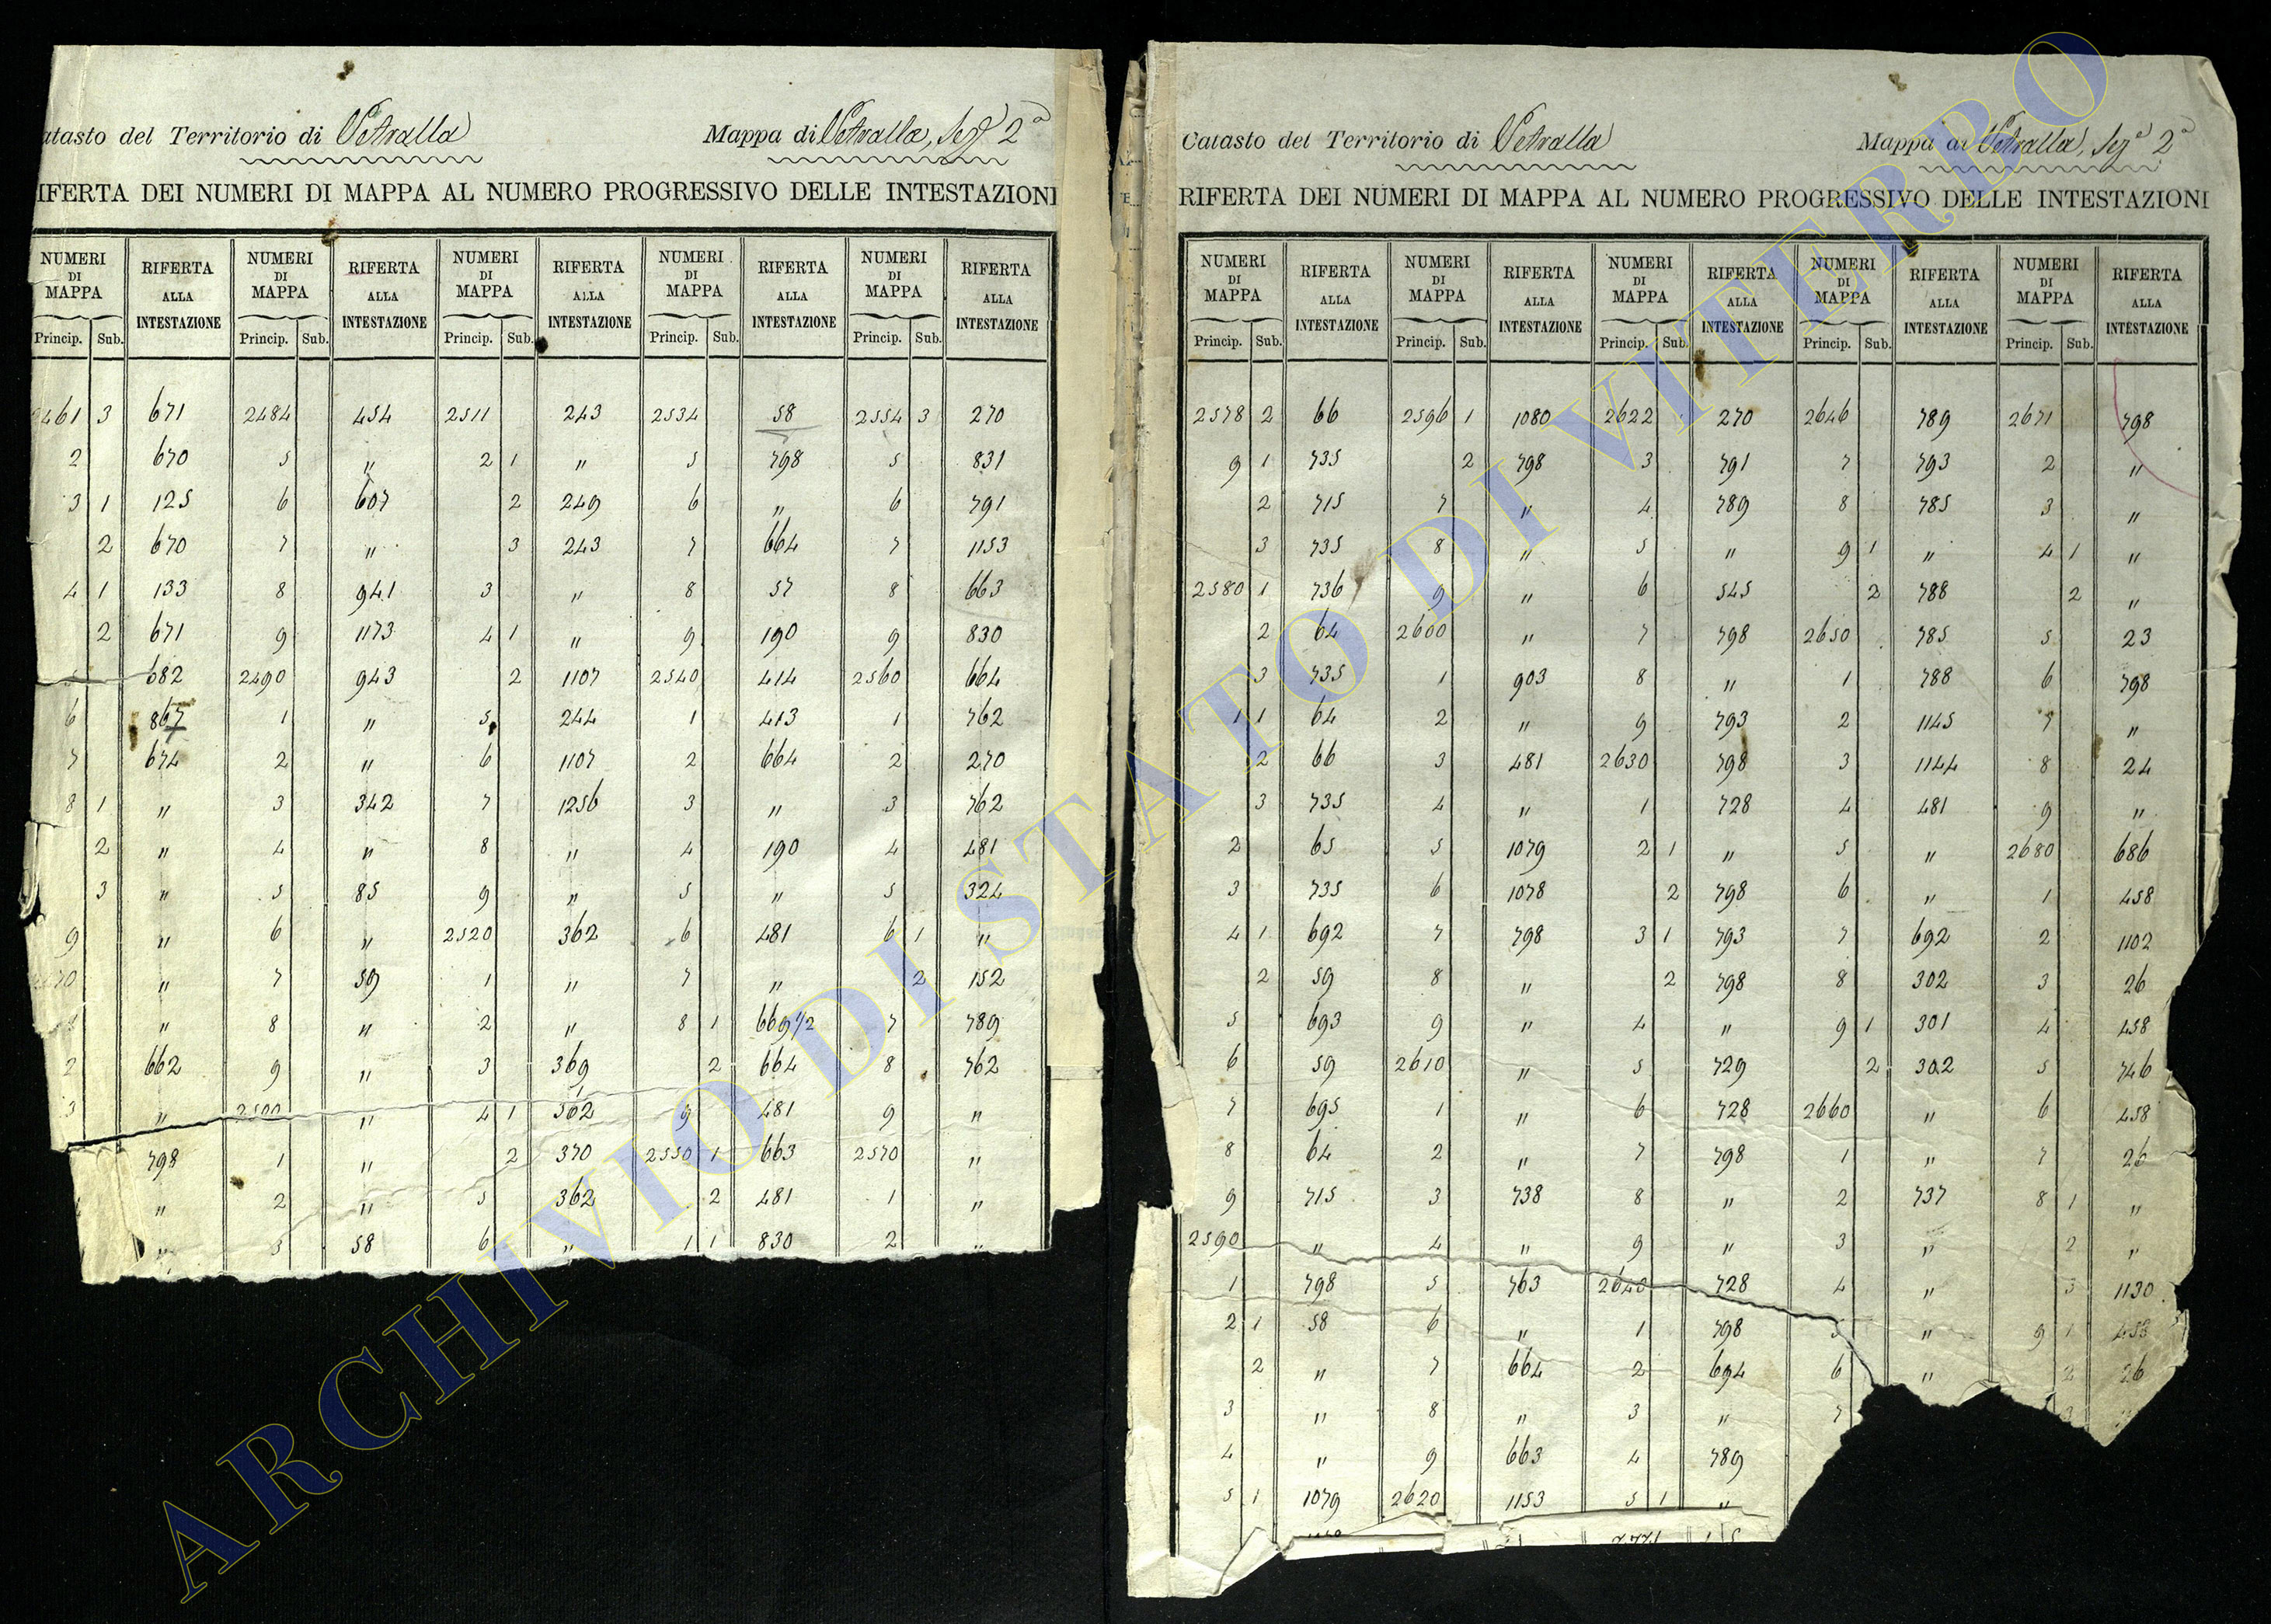 atasto del Territorio di Vetralla Mappa di Vetralla, Sez 2ª
IFERTA DEI NUMERI DI MAPPA AL NUMERO PROGRESSIVO DELLE INTESTAZIONI
NUMERI DI MAPPA RIFERTA ALLA INTESTAZIONE NUMERI DI MAPPA RIFERTA ALLA INTESTAZIONE NUMERI DI MAPPA RIFERTA ALLA INTESTAZIONE NUMERI DI MAPPA RIFERTA ALLA INTESTAZIONE NUMERI DI MAPPA RIFERTA ALLA INTESTAZIONE
Princip. Sub. Princip. Sub. Princip. Sub. Princip. Sub. Princip. Sub.
2461 3 671 2484 454 2511 243 2534 58 2554 3 270
2 670 5 " 2 1 " 5 798 5 831
3 1 125 6 607 2 249 6 " 6 791
2 670 7 " 3 243 7 664 7 1153
4 1 133 8 941 3 " 8 57 8 663
2 671 9 1173 4 1 " 9 190 9 830
682 2490 943 2 1107 2540 414 2560 664
6 867 1 " 5 244 1 413 1 762
7 674 2 " 6 1107 2 664 2 270
8 1 " 3 342 7 1256 3 " 3 762
2 " 4 " 8 " 4 190 4 481
3 " 5 85 9 " 5 " 5 324
9 " 6 " 2520 362 6 481 6 1 "
70 " 7 59 1 " 7 " 2 152
" 8 " 2 " 8 1 669 1/2 7 789
2 662 9 " 3 369 2 664 8 762
3 " 2500 " 4 1 362 9 481 9 "
798 1 " 2 370 2550 1 663 2570 "
" 2 " 5 362 2 481 1 "
" 3 58 6 " 1 1 830 2 "
Catasto del Territorio di Vetralla Mappa di Vetralla, Sezª 2ª
RIFERTA DEI NUMERI DI MAPPA AL NUMERO PROGRESSIVO DELLE INTESTAZIONI
NUMERI DI MAPPA RIFERTA ALLA INTESTAZIONE NUMERI DI MAPPA RIFERTA ALLA INTESTAZIONE NUMERI DI MAPPA RIFERTA ALLA INTESTAZIONE NUMERI DI MAPPA RIFERTA ALLA INTESTAZIONE NUMERI DI MAPPA RIFERTA ALLA INTESTAZIONE
Princip. Sub. Princip. Sub. Princip. Sub. Princip. Sub. Princip. Sub.
2578 2 66 2596 1 1080 2622 270 2646 789 2671 798
9 1 735 2 798 3 791 7 793 2 "
2 715 7 " 4 789 8 785 3 "
3 735 8 " 5 " 9 1 " 4 1 "
2580 1 736 9 " 6 545 2 788 2 "
2 64 2600 " 7 798 2650 785 5 23
3 735 1 903 8 " 1 788 6 798
1 1 64 2 " 9 793 2 1145 7 "
2 66 3 481 2630 798 3 1144 8 24
3 735 4 " 1 728 4 481 9 "
2 65 5 1079 2 1 " 5 " 2680 686
3 735 6 1078 2 798 6 " 1 458
4 1 692 7 798 3 1 793 7 692 2 1102
2 59 8 " 2 798 8 302 3 26
5 693 9 " 4 " 9 1 301 4 458
6 59 2610 " 5 729 2 302 5 746
7 695 1 " 6 728 2660 " 6 458
8 64 2 " 7 798 1 " 7 26
9 715 3 738 8 " 2 737 8 1 "
2590 " 4 " 9 " 3 " 2 "
1 798 5 763 2640 728 4 " 3 1130
2 1 58 6 " 1 798 5 " 9 1 453
2 " 7 664 2 694 6 " 2 26
3 " 8 " 3 " 7
4 " 9 663 4 789
5 1 1079 2620 1153 5 1 "
ARCHIVIO DI STATO DI VITERBO